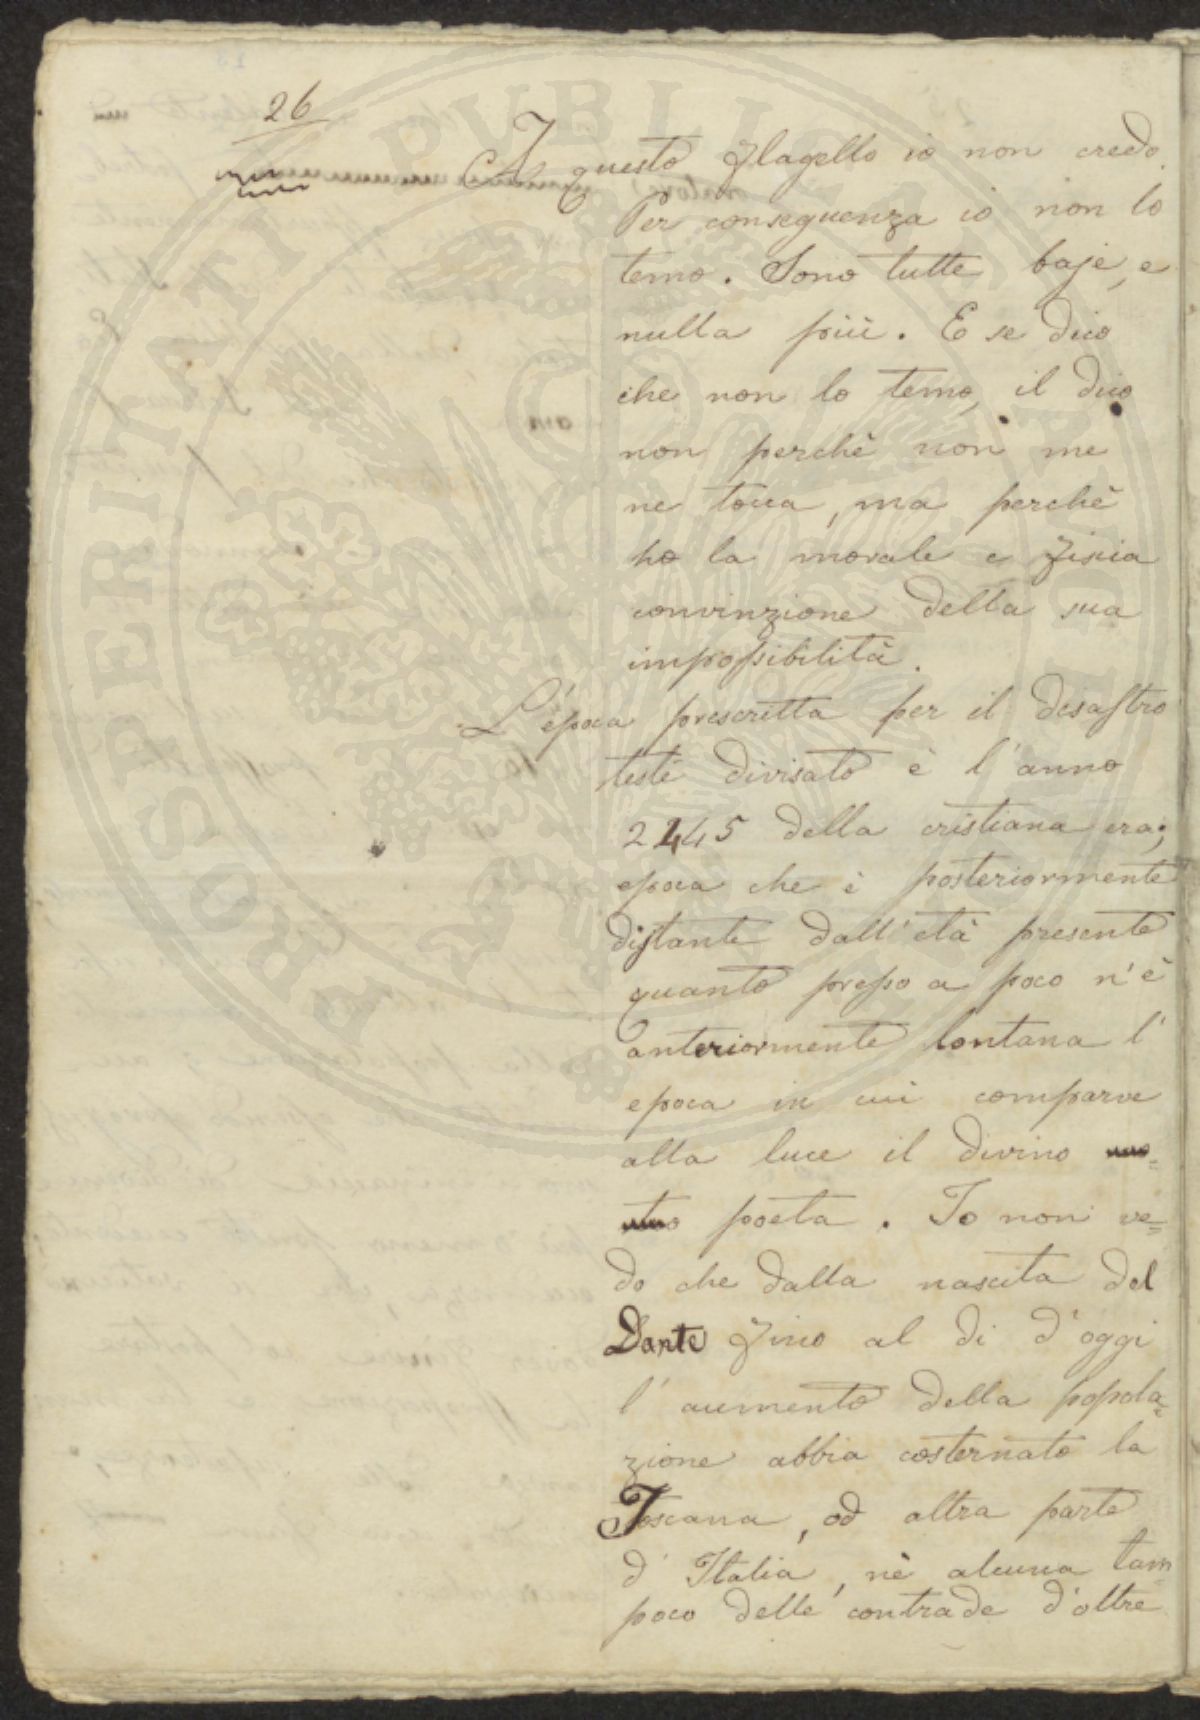 26
A questo flagello io non credo.
Per conseguenza io non lo
temo. Sono tutte baje, e
nulla più. E se dico
che non lo temo, il dico
non perchè non me
ne tocca, ma perchè
ho la morale e fisica
convinzione della sua
impossibilità.
L'época prescritta per il desastro
testè divisato è l'anno
2145 della cristiana era;
epoca che è posteriormente
distante dall'età presente
quanto presso a poco n'è
anteriormente lontana l'
epoca in cui comparve
alla luce il divino
poeta. Io non ve=
do che dalla nascita del
Dante fino al di d'oggi
l'aumento della popola=
zione abbia costernato la
Toscana, od altra parte
d'Italia, nè alcuna tam
poco delle contrade d'oltre
PROSPERITATI PUBLICAE